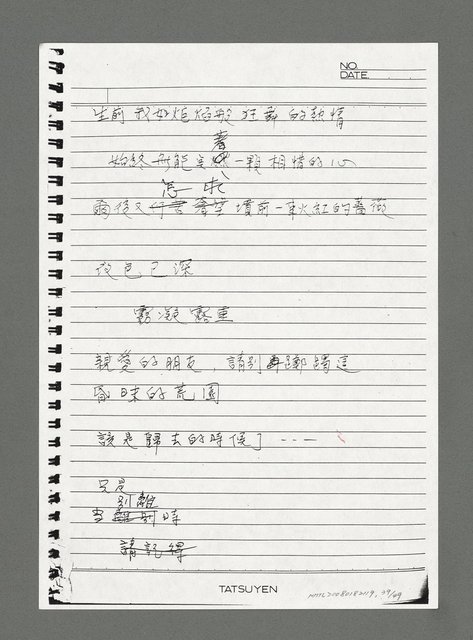 NO.
DATE
生前我如炬焰般狂舞的熱情
始終冊能 一顆相惜的心
怎
爾後又 墳前一束火紅的薔薇
夜色已深
霧凝露重
親愛的朋友，請別再躑躅這
昏昧的荒園
該是歸去的時候了----
只是
別離
當離別時
請記得
TATSUYEN
NMTL20080182119, 39/69